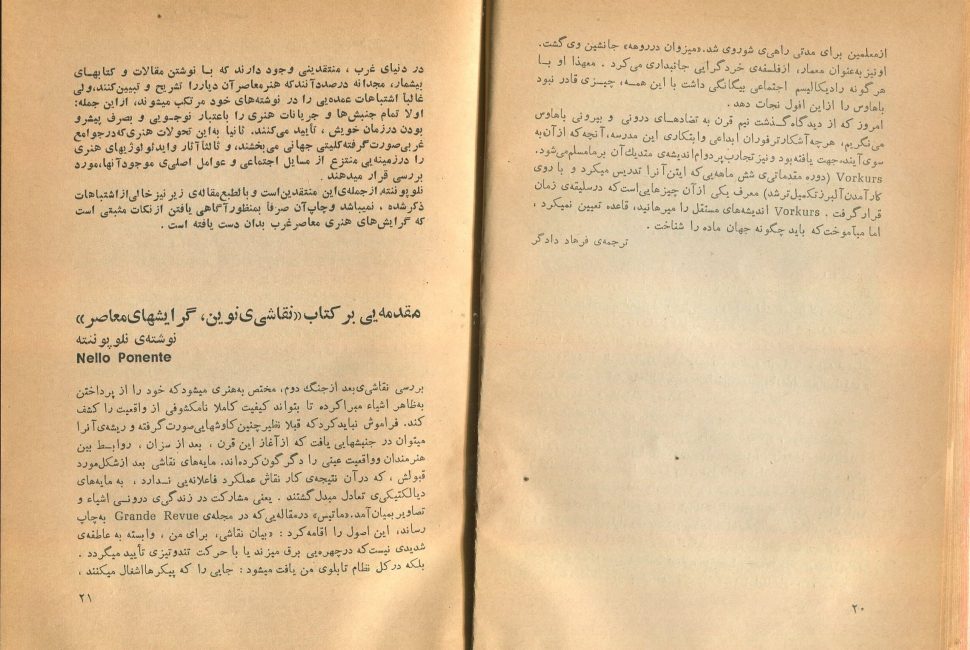 ازمعلمین برای مدتی راهی‌ی شوروی شد. «میزوان درروهه» جانشین وی گشت.
اونیز به‌عنوان معمار، ازفلسفه‌ی خردگرایی جانبداری می‌کرد. معهذا او بــا
هرگونه رادیکالیسم اجتماعی بیگانگی داشت با این همــه، چیــزی قادر نبود
باهاوس را ازاین افول نجات دهد.
امروز که از دیدگاه گــذشت نیم قرن به تضادهــای درونی و بیرونی باهاوس
می‌نگریم، هرچه آشکارتر فوران ابداعی وابتکاری این مدرسه، آنچه که ازآن به
سوی آینده، جهت یافته بود ونیز تجارب پردوام اندیشه‌ی متدیك آن برما مسلم می‌شود.
Vorkurs (دوره مقدماتی‌ی شش ماهه‌یی که ایتن آنرا تدریس میکرد و با روی
کارآمدن آلبرز تکمیل‌تر شد) معرف یکی ازآن چیزهایی است که درسلیقه‌ی زمان
قرار گرفت. Vorkurs اندیشه‌های مستقل را میرهانید، قاعده تعیین نمیکرد،
اما میآموخت که باید چگونه جهان ماده را شناخت.
ترجمه‌ی فرهاد دادگر
۲۰
در دنیای غرب، منتقدینی وجود دارند که بــا نوشتن مقالات و کتابهــای
بیشمار، مجدانه درصددآنند که هنرمعاصرآن دیار را تشریح و تبیین کنند، ولی
غالباً اشتباهات عمده‌یی را در نوشته‌های خود مرتکب میشوند، ازاین جمله:
اولا تمام جنبش‌ها و جریانات هنری را باعتبار نوجــویی و بصرف پیشرو
بودن درزمان خویش، تأیید می‌کنند. ثانیا به‌این تحولات هنری که درجوامع
غربی صورت گرفته کلیتی جهانی می‌بخشند، و ثالثاً آثار وایدئولوژیهای هنری
را درزمینه‌یی منتزع از مسایل اجتماعی و عوامل اصلی‌ی موجود آنها، مورد
بررسی قرار میدهند.
نلوپوننته ازجمله‌ی این منتقدین است و بالطبع مقاله‌ی زیر نیز خالی از اشتباهات
ذکرشده، نمیباشد وچاپ آن صرفاً بمنظور آگاهی یافتن از نکات مثبتی است
که گرایش‌های هنری معاصرغرب بدان دست یافته است.
مقدمه‌یی بر کتاب «نقاشی‌ی نوین، گرایشهای معاصر»
نوشته‌ی نلو پوننته
Nello Ponente
بررسی نقاشی‌ی بعد ازجنگ دوم، مختص به‌هنری میشود که خود را از پرداختن
به‌ظاهر اشیاء مبرا کرده تا بتواند کیفیت کاملا نامکشوفی از واقعیت را کشف
کند. فراموش نباید کرد که قبلا نظیر چنین کاوشهایی صورت گرفته و ریشه‌ی آنرا
میتوان در جنبشهایی یافت که ازآغاز این قرن، بعد از سزان، روابــط بین
هنرمندان وواقعیت عینی را دگرگون کرده‌اند. مایه‌های نقاشی بعد ازشکل مورد
قبولش، که درآن نتیجه‌ی کار نقاش عملکرد فاعلانه‌یی نــدارد، به مایه‌های
دیالکتیکی‌ی تعادل مبدل گشتند. یعنی مشارکت در زندگی‌ی درونــی اشیاء و
تصاویر بمیان آمد. «ماتیس» درمقاله‌یی که در مجله‌ی Grande Revue به‌چاپ
رساند، این اصول را اقامه کرد: «بیان نقاشی، برای من، وابسته به عاطفه‌ی
شدیدی نیست که درچهره‌یی برق میزند یا با حرکت تندوتیزی تأیید میگردد.
بلکه درکل نظام تابلوی من یافت میشود: جایی را که پیکرها اشغال میکنند،
۲۱